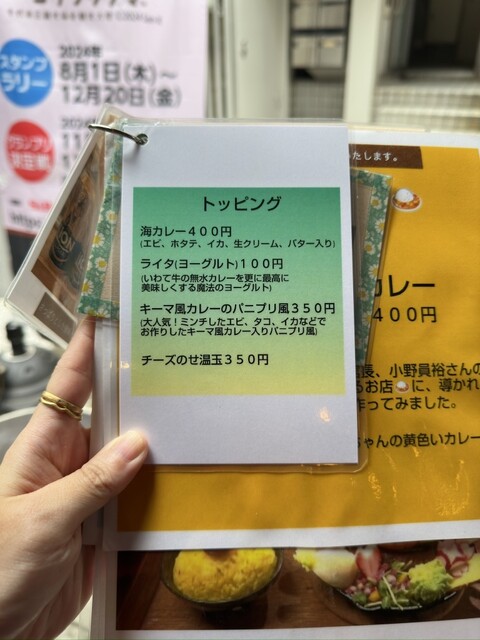 スタンプ
ラリー
2024年
8月1日(木)～
12月20日(金)
たします。
トッピング
海カレー400円
(エビ、ホタテ、イカ、生クリーム、バター入り)
ライタ(ヨーグルト)100円
(いわて牛の無水カレーを更に最高に
美味しくする魔法のヨーグルト)
キーマ風カレーのパニプリ風350円
(大人気！ミンチしたエビ、タコ、イカなどで
お作りしたキーマ風カレー入りパニプリ風)
チーズのせ温玉350円
カレー
400円
長、小野員裕さんの
るお店に、導かれ
作ってみました。
ちゃんの黄色いカレー